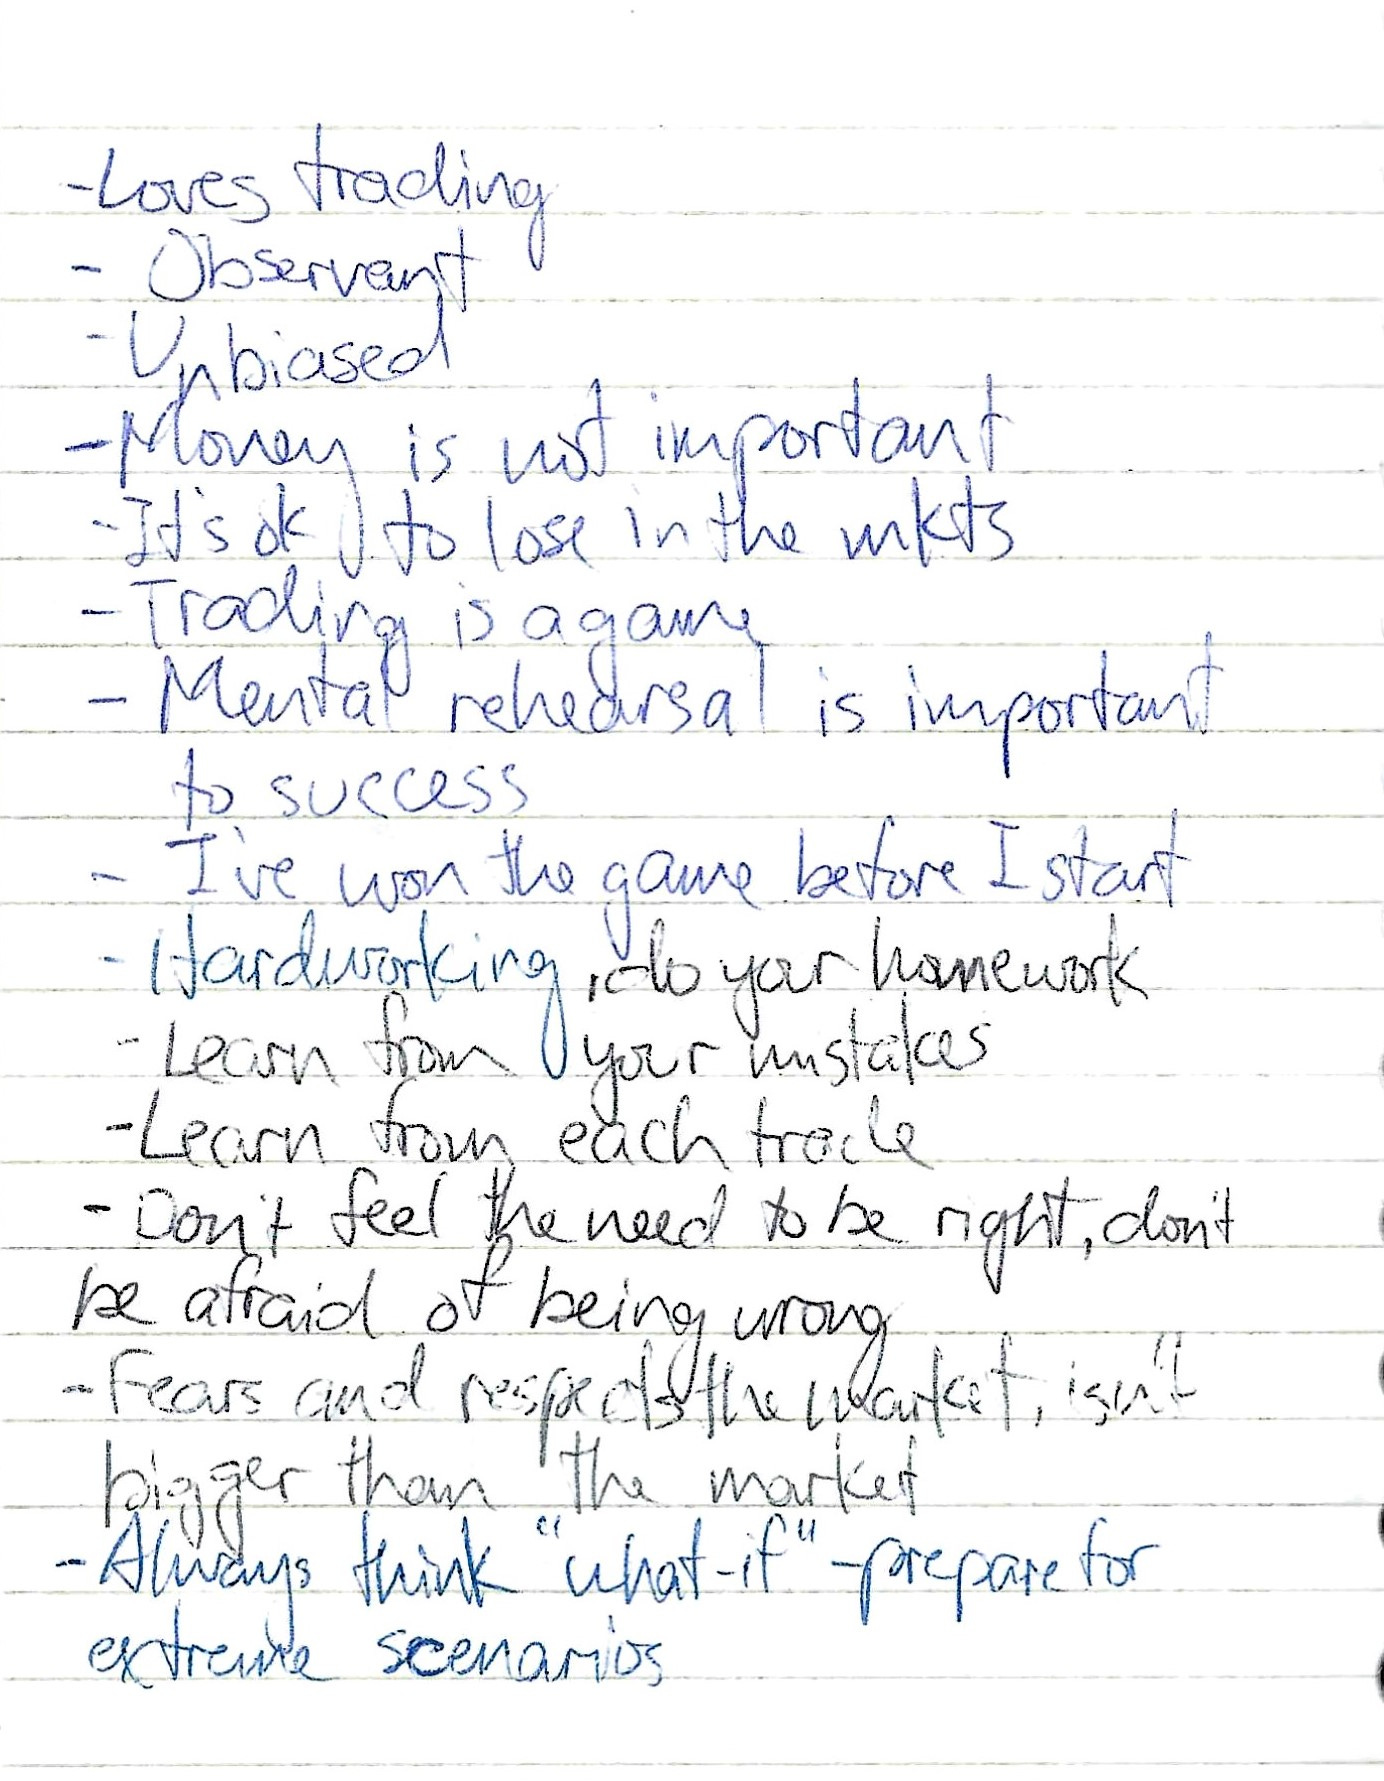 -Loves trading
- Observant
- Unbiased
- Money is not important
- It's ok to lose in the mkts
- Trading is a game
- Mental rehearsal is important
to success
- I've won the game before I start
- Hardworking, do your homework
- Learn from your mistakes
- Learn from each trade
- Don't feel the need to be right, don't
be afraid of being wrong
- Fears and respects the market, isn't
bigger than the market
- Always think "what-if" - prepare for
extreme scenarios